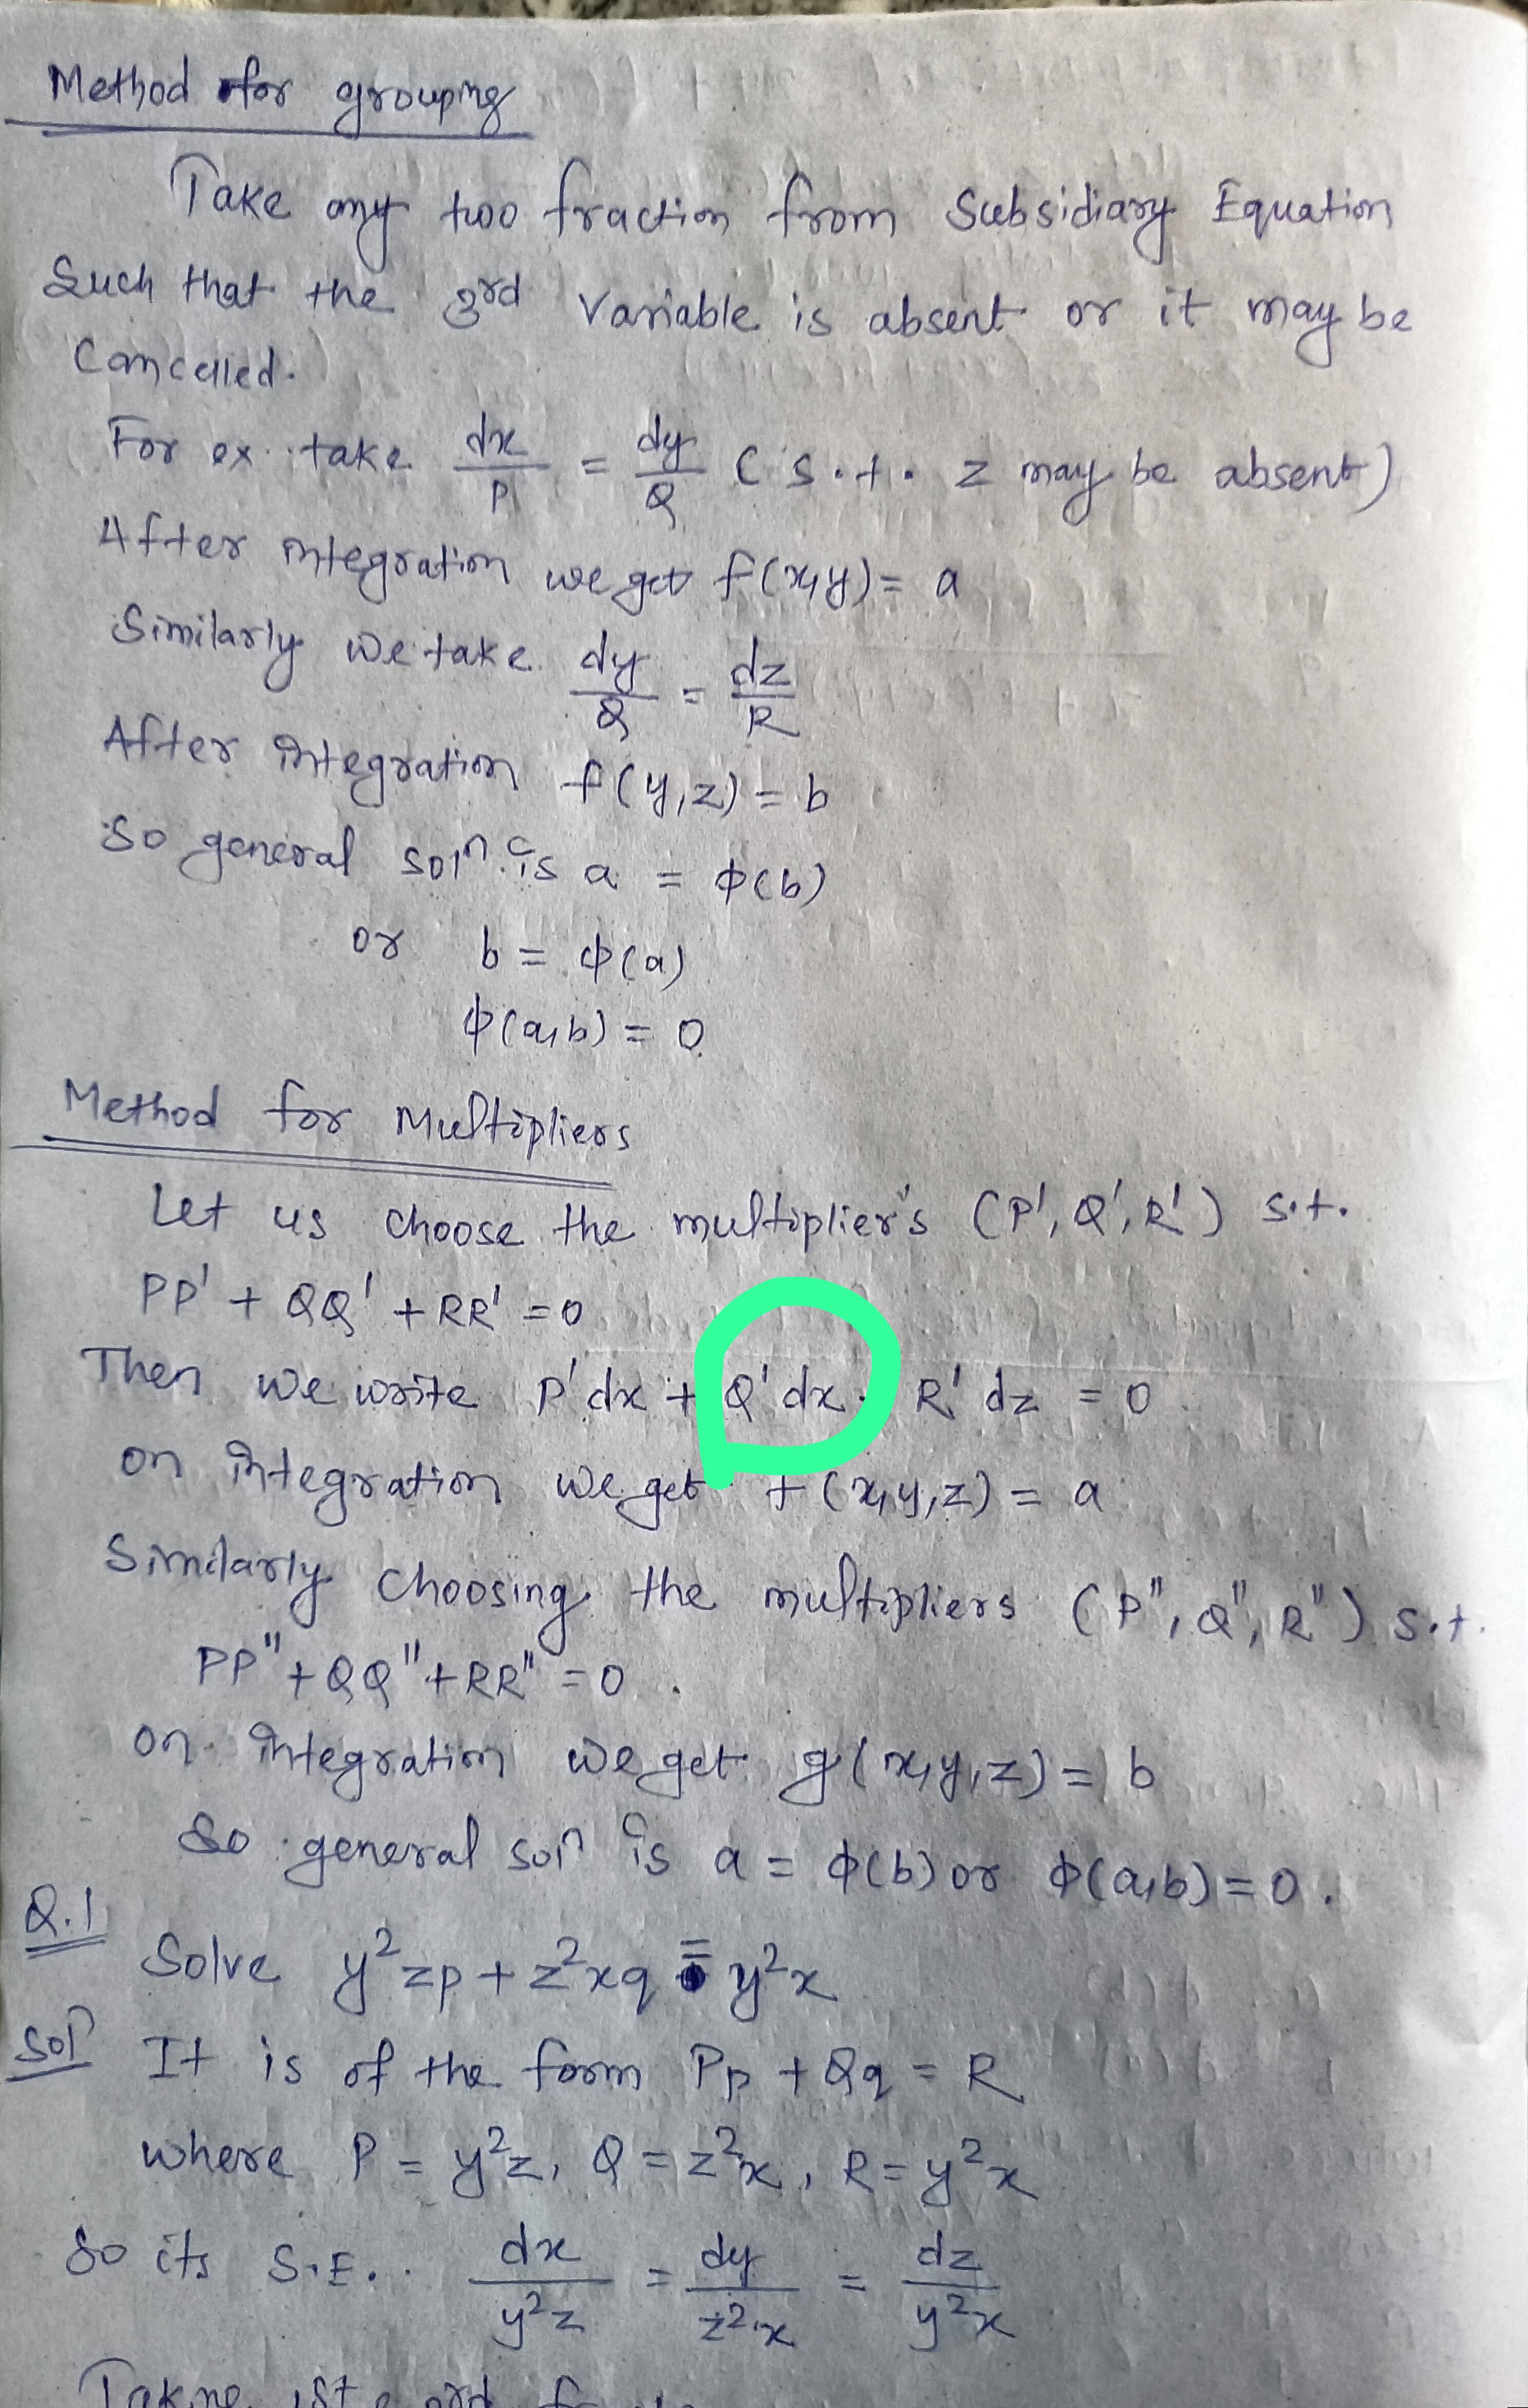 Method for grouping
Take any two fraction from Subsidiary Equation
Such that the 3rd Variable is absent or it may be
Cancelled.
For ex. take dx/P = dy/Q (s.t. z may be absent)
After integration we get f(x,y) = a
Similarly we take dy/Q = dz/R
After integration f(y,z) = b
So general solⁿ is a = φ(b)
or b = φ(a)
φ(a,b) = 0
Method for Multipliers
Let us choose the multiplier's (P', Q', R') s.t.
PP' + QQ' + RR' = 0
Then we write P'dx + Q'dx · R'dz = 0
on integration we get f(x,y,z) = a
Similarly choosing the multipliers (P", Q", R") s.t.
PP" + QQ" + RR" = 0.
on integration we get g(x,y,z) = b
So general solⁿ is a = φ(b) or φ(a,b) = 0.
Q.1 Solve y²zp + z²xq = y²x
Solⁿ It is of the form Pp + Qq = R
where P = y²z, Q = z²x, R = y²x
So its S.E.. dx/y²z = dy/z²x = dz/y²x
Taking 1st